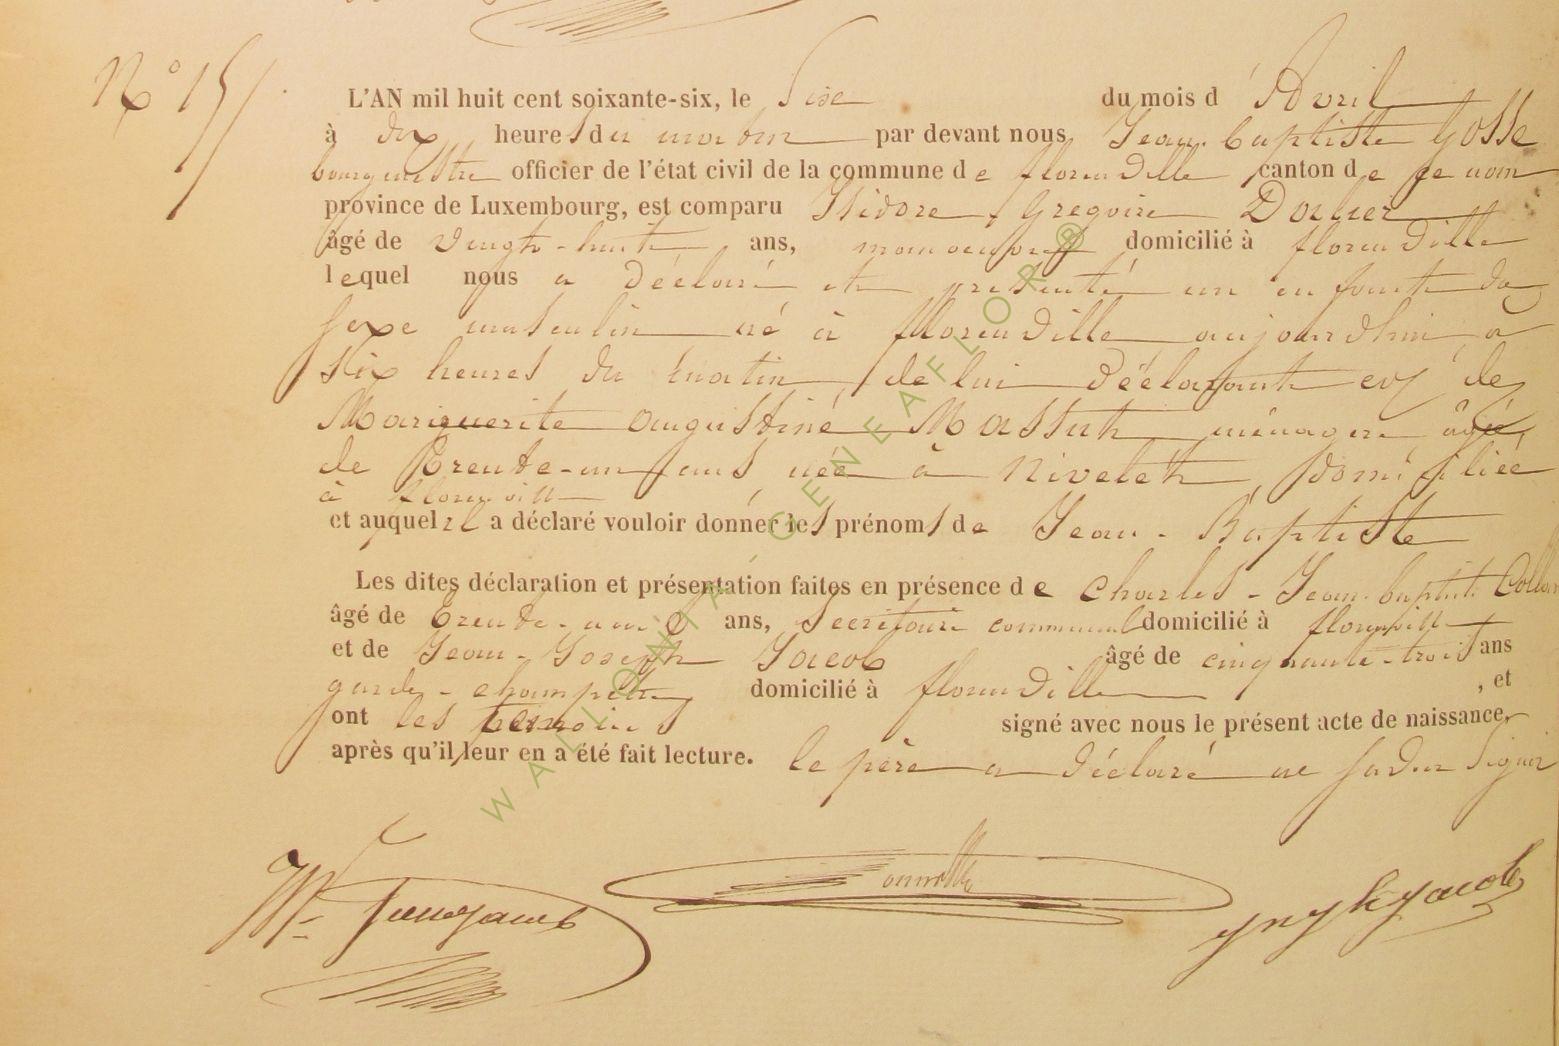 N° 15
L'AN mil huit cent soixante-six, le Sixe du mois d'Avril
à dix heures du matin par devant nous Jean-baptiste Gosse
bourgmestre officier de l'état civil de la commune de florenville canton de
province de Luxembourg, est comparu Isidore Gregoire
âgé de vingt-huit ans, manoeuvre domicilié à florenville
lequel nous a déclaré et présenté un enfant du
sexe masculin né à florenville aujourdhui à
six heures du matin, de lui déclarant et de
Mariguerite augustine Massut ménagère âgée,
de trente-un ans née à domiciliée
à florenville
et auquel il a déclaré vouloir donner les prénoms de Jean-Baptiste
Les dites déclaration et présentation faites en présence de Charles-Jean-baptist
âgé de trente ans, secrétaire communal domicilié à florenville
et de Jean-Joseph Jacob âgé de cinquante-trois ans
garde-champêtre domicilié à florenville, et
ont les temoins signé avec nous le présent acte de naissance,
après qu'il leur en a été fait lecture. le père a déclaré ne savoir signer
Jacob
WALLONIA-GENEAFLOR®